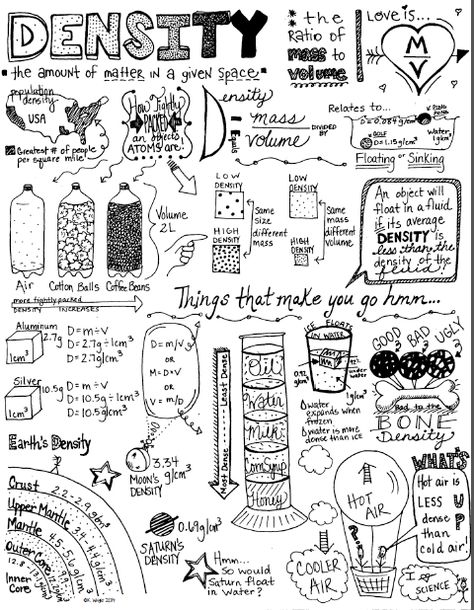 DENSITY
the amount of matter in a given space.
the
Ratio of
mass to
volume
Love is...
M
V
population
density
USA
Greatest # of people
per square mile
How Tightly
PACKED
an objects
ATOMS are!
Density
Equals
mass
DIVIDED
volume
Relates to...
D=0.084g/cm³
GOLF
D=1.15g/cm³
Water 1g/cm³
Floating or Sinking
Air
Cotton Balls
Coffee Beans
Volume
2L
more tightly packed
DENSITY INCREASES
LOW
DENSITY
HIGH
DENSITY
Same
size
different
mass
LOW
DENSITY
HIGH
DENSITY
Same
mass
different
volume
An object will
float in a fluid
if its average
DENSITY is
less than the
density of the
fluid!
Things that make you go hmm...
Aluminum
2.7g
1cm³
D=m÷v
D=2.7g÷1cm³
D=2.7g/cm³
Silver
10.5g
1cm³
D=m÷v
D=10.5g÷1cm³
D=10.5g/cm³
D=m/v
OR
M=D×V
OR
V=m/D
Least Dense
Most Dense
Oil
Water
Milk
Corn Syrup
Honey
ICE FLOATS
IN WATER
0.92
g/cm³
1g/cm³
water
expands when
frozen
water is more
dense than ice
GOOD BAD UGLY
Bad to the
BONE
Density
Earth's Density
Crust 2.2-2.9g/cm³
Upper Mantle 3.4-4.4g/cm³
Mantle 4.5-5.6g/cm³
Outer Core
Inner
Core
3.34
g/cm³
MOON'S
DENSITY
0.69g/cm³
SATURN'S
DENSITY
Hmm...
So would
Saturn float
in water?
COOLER
AIR
HOT
AIR
WHAT'S
UP
Hot air is
LESS
dense
than
cold air!
I
SCIENCE